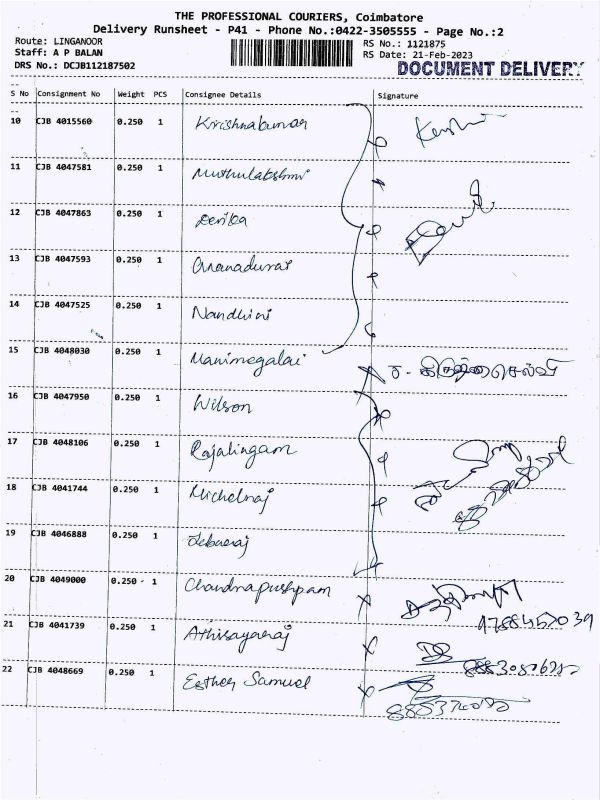 THE PROFESSIONAL COURIERS, Coimbatore
Delivery Runsheet - P41 - Phone No.:0422-3505555 - Page No.:2
Route: LINGANOOR
Staff: A P BALAN
DRS No.: DCJB112187502
RS No.: 1121875
RS Date: 21-Feb-2023
DOCUMENT DELIVERY
S No Consignment No Weight PCS Consignee Details Signature
10 CJB 4015560 0.250 1 Krishnakumar
11 CJB 4047581 0.250 1 Muthulakshmi
12 CJB 4047863 0.250 1 Devika
13 CJB 4047593 0.250 1 Gnanadurai
14 CJB 4047525 0.250 1 Nandhini
15 CJB 4048030 0.250 1 Manimegalai
16 CJB 4047950 0.250 1 Wilson
17 CJB 4048106 0.250 1 Rajalingam
18 CJB 4041744 0.250 1 Michelraj
19 CJB 4046888 0.250 1 Jebaraj
20 CJB 4049000 0.250 - 1 Chandrapushpam
21 CJB 4041739 0.250 1 Athisayaraj
22 CJB 4048669 0.250 1 Esther Samuel